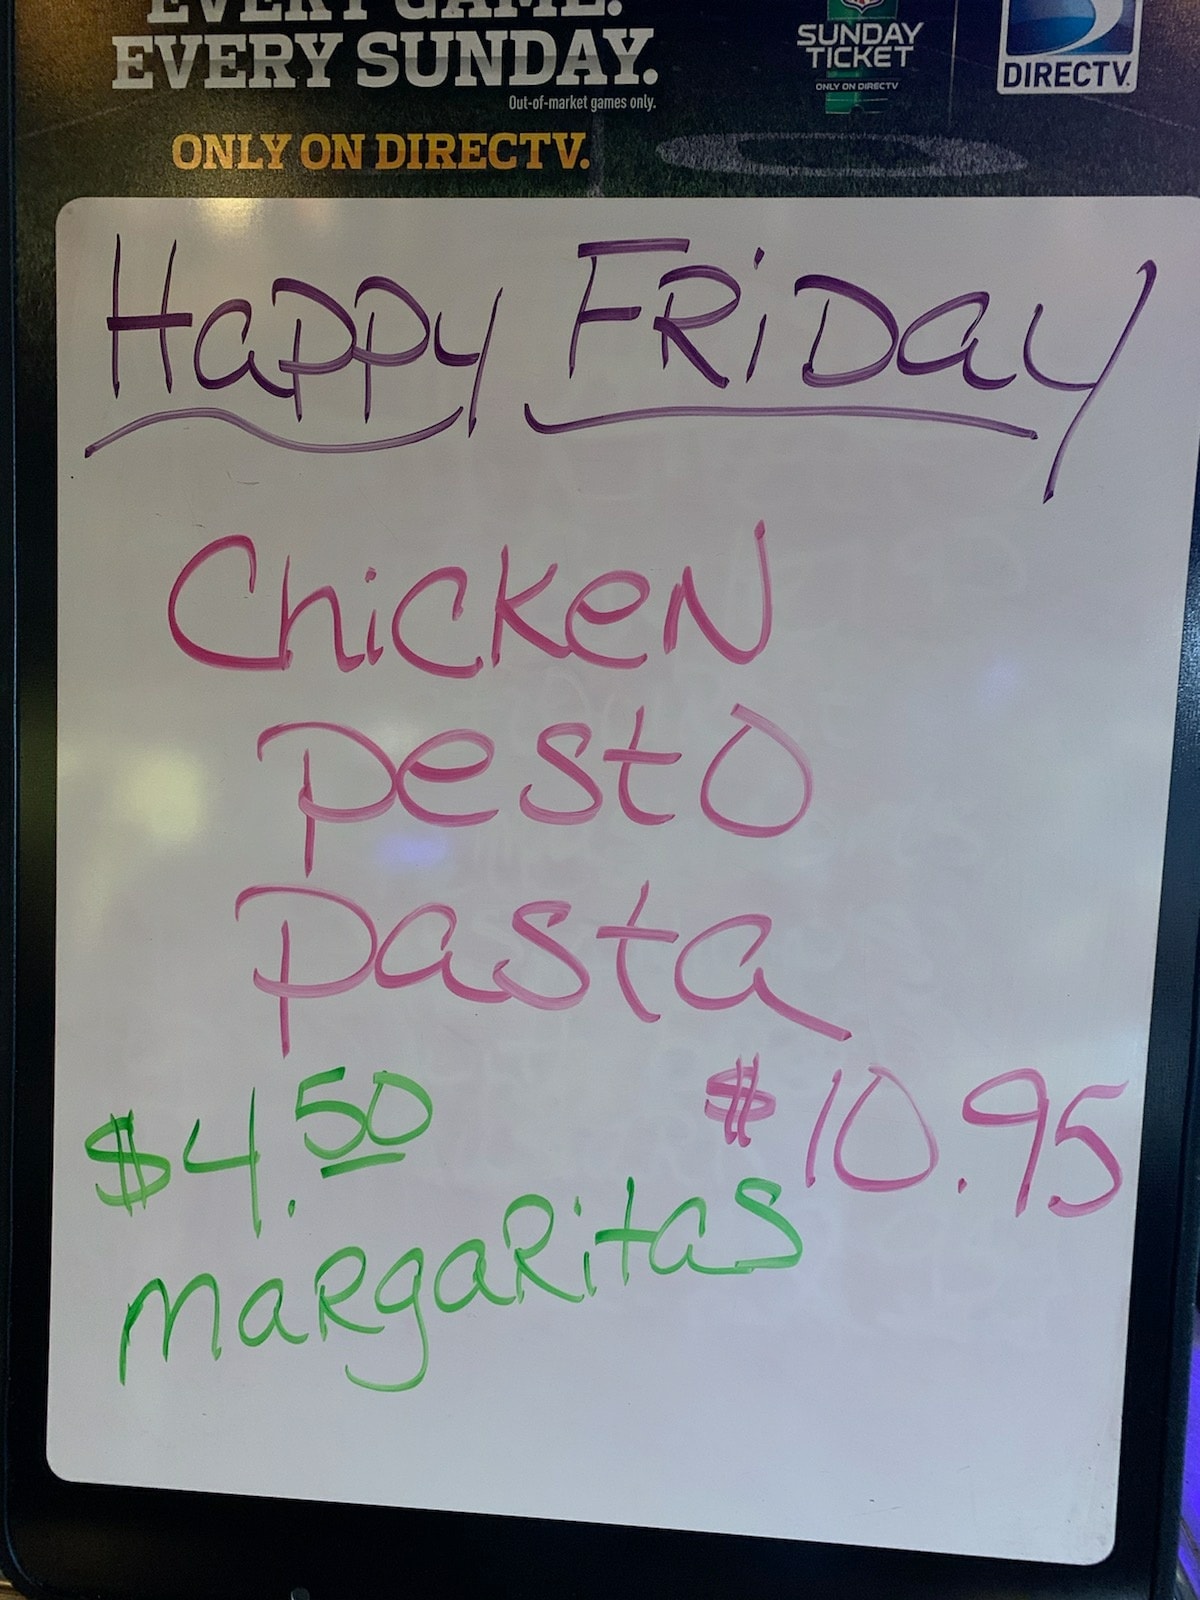 EVERY GAME.
EVERY SUNDAY.
Out-of-market games only.
ONLY ON DIRECTV.
SUNDAY
TICKET
ONLY ON DIRECTV
DIRECTV
Happy FRiDay
ChickeN
pesto
pasta
$10.95
$4.50
maRgaRitas